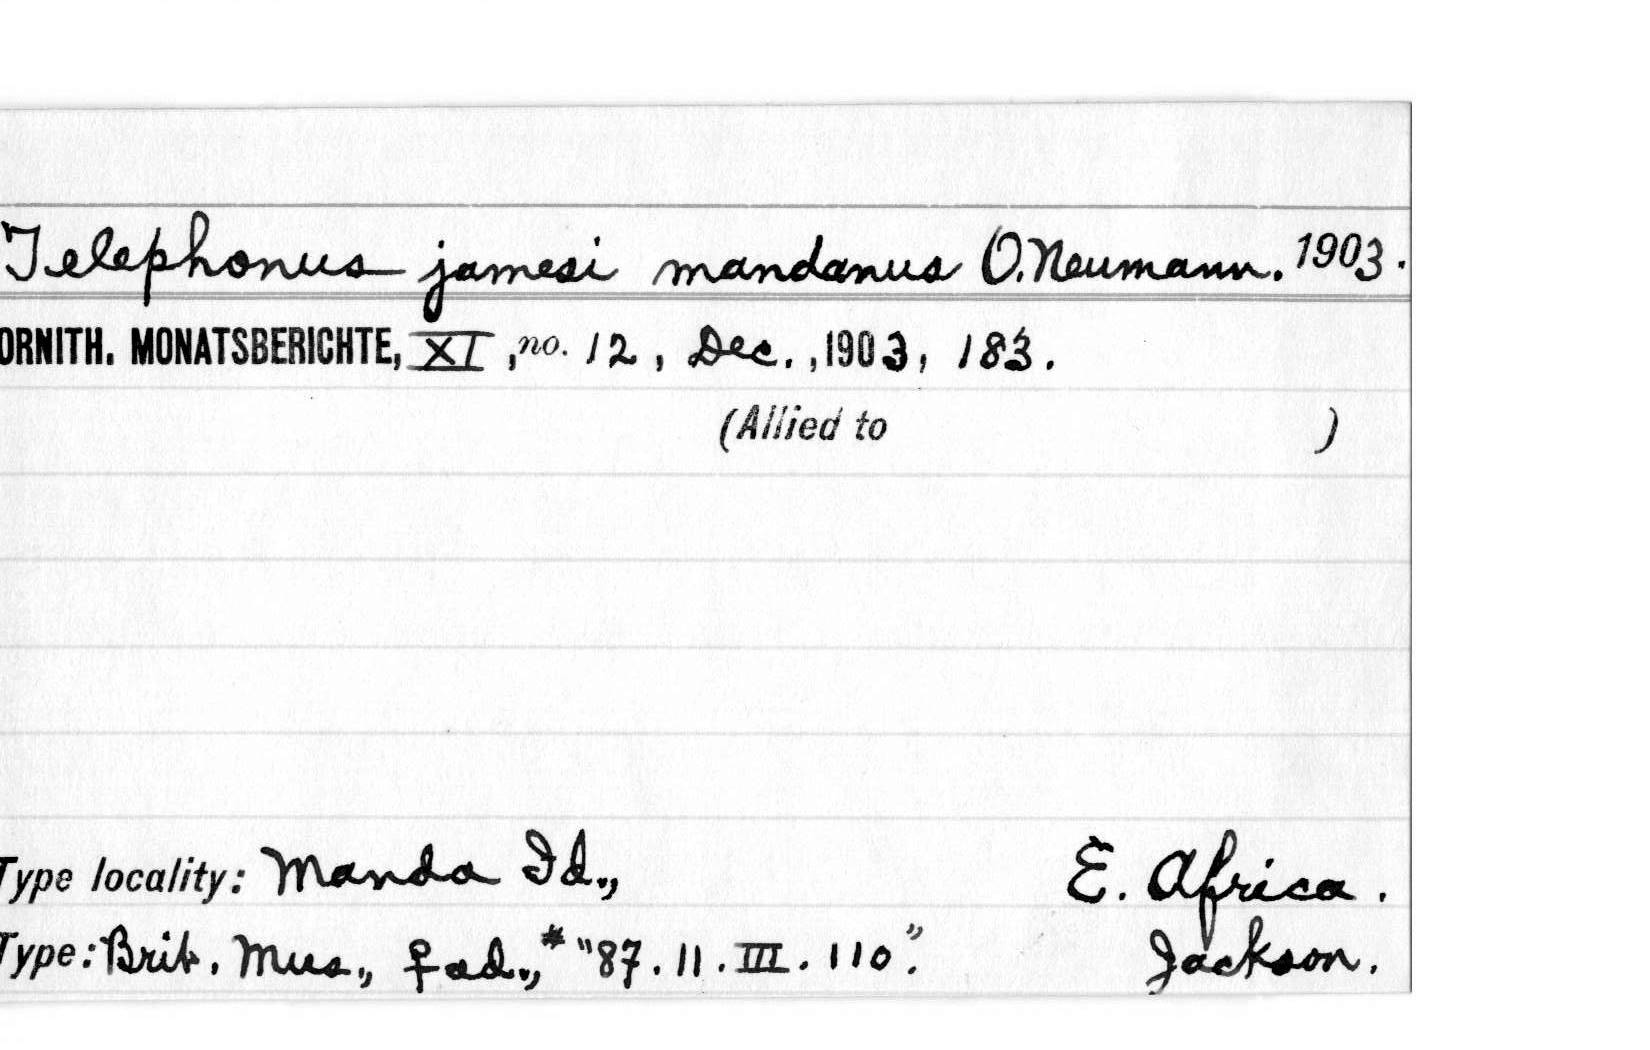 Telephonus jamesi mandanus O. Neumann. 1903.
ORNITH. MONATSBERICHTE, XI, no. 12, Dec., 1903, 183.
(Allied to )
Type locality: Manda Id., E. Africa.
Type: Brit. Mus., ♀ ad., # "87.11.III.110". Jackson.